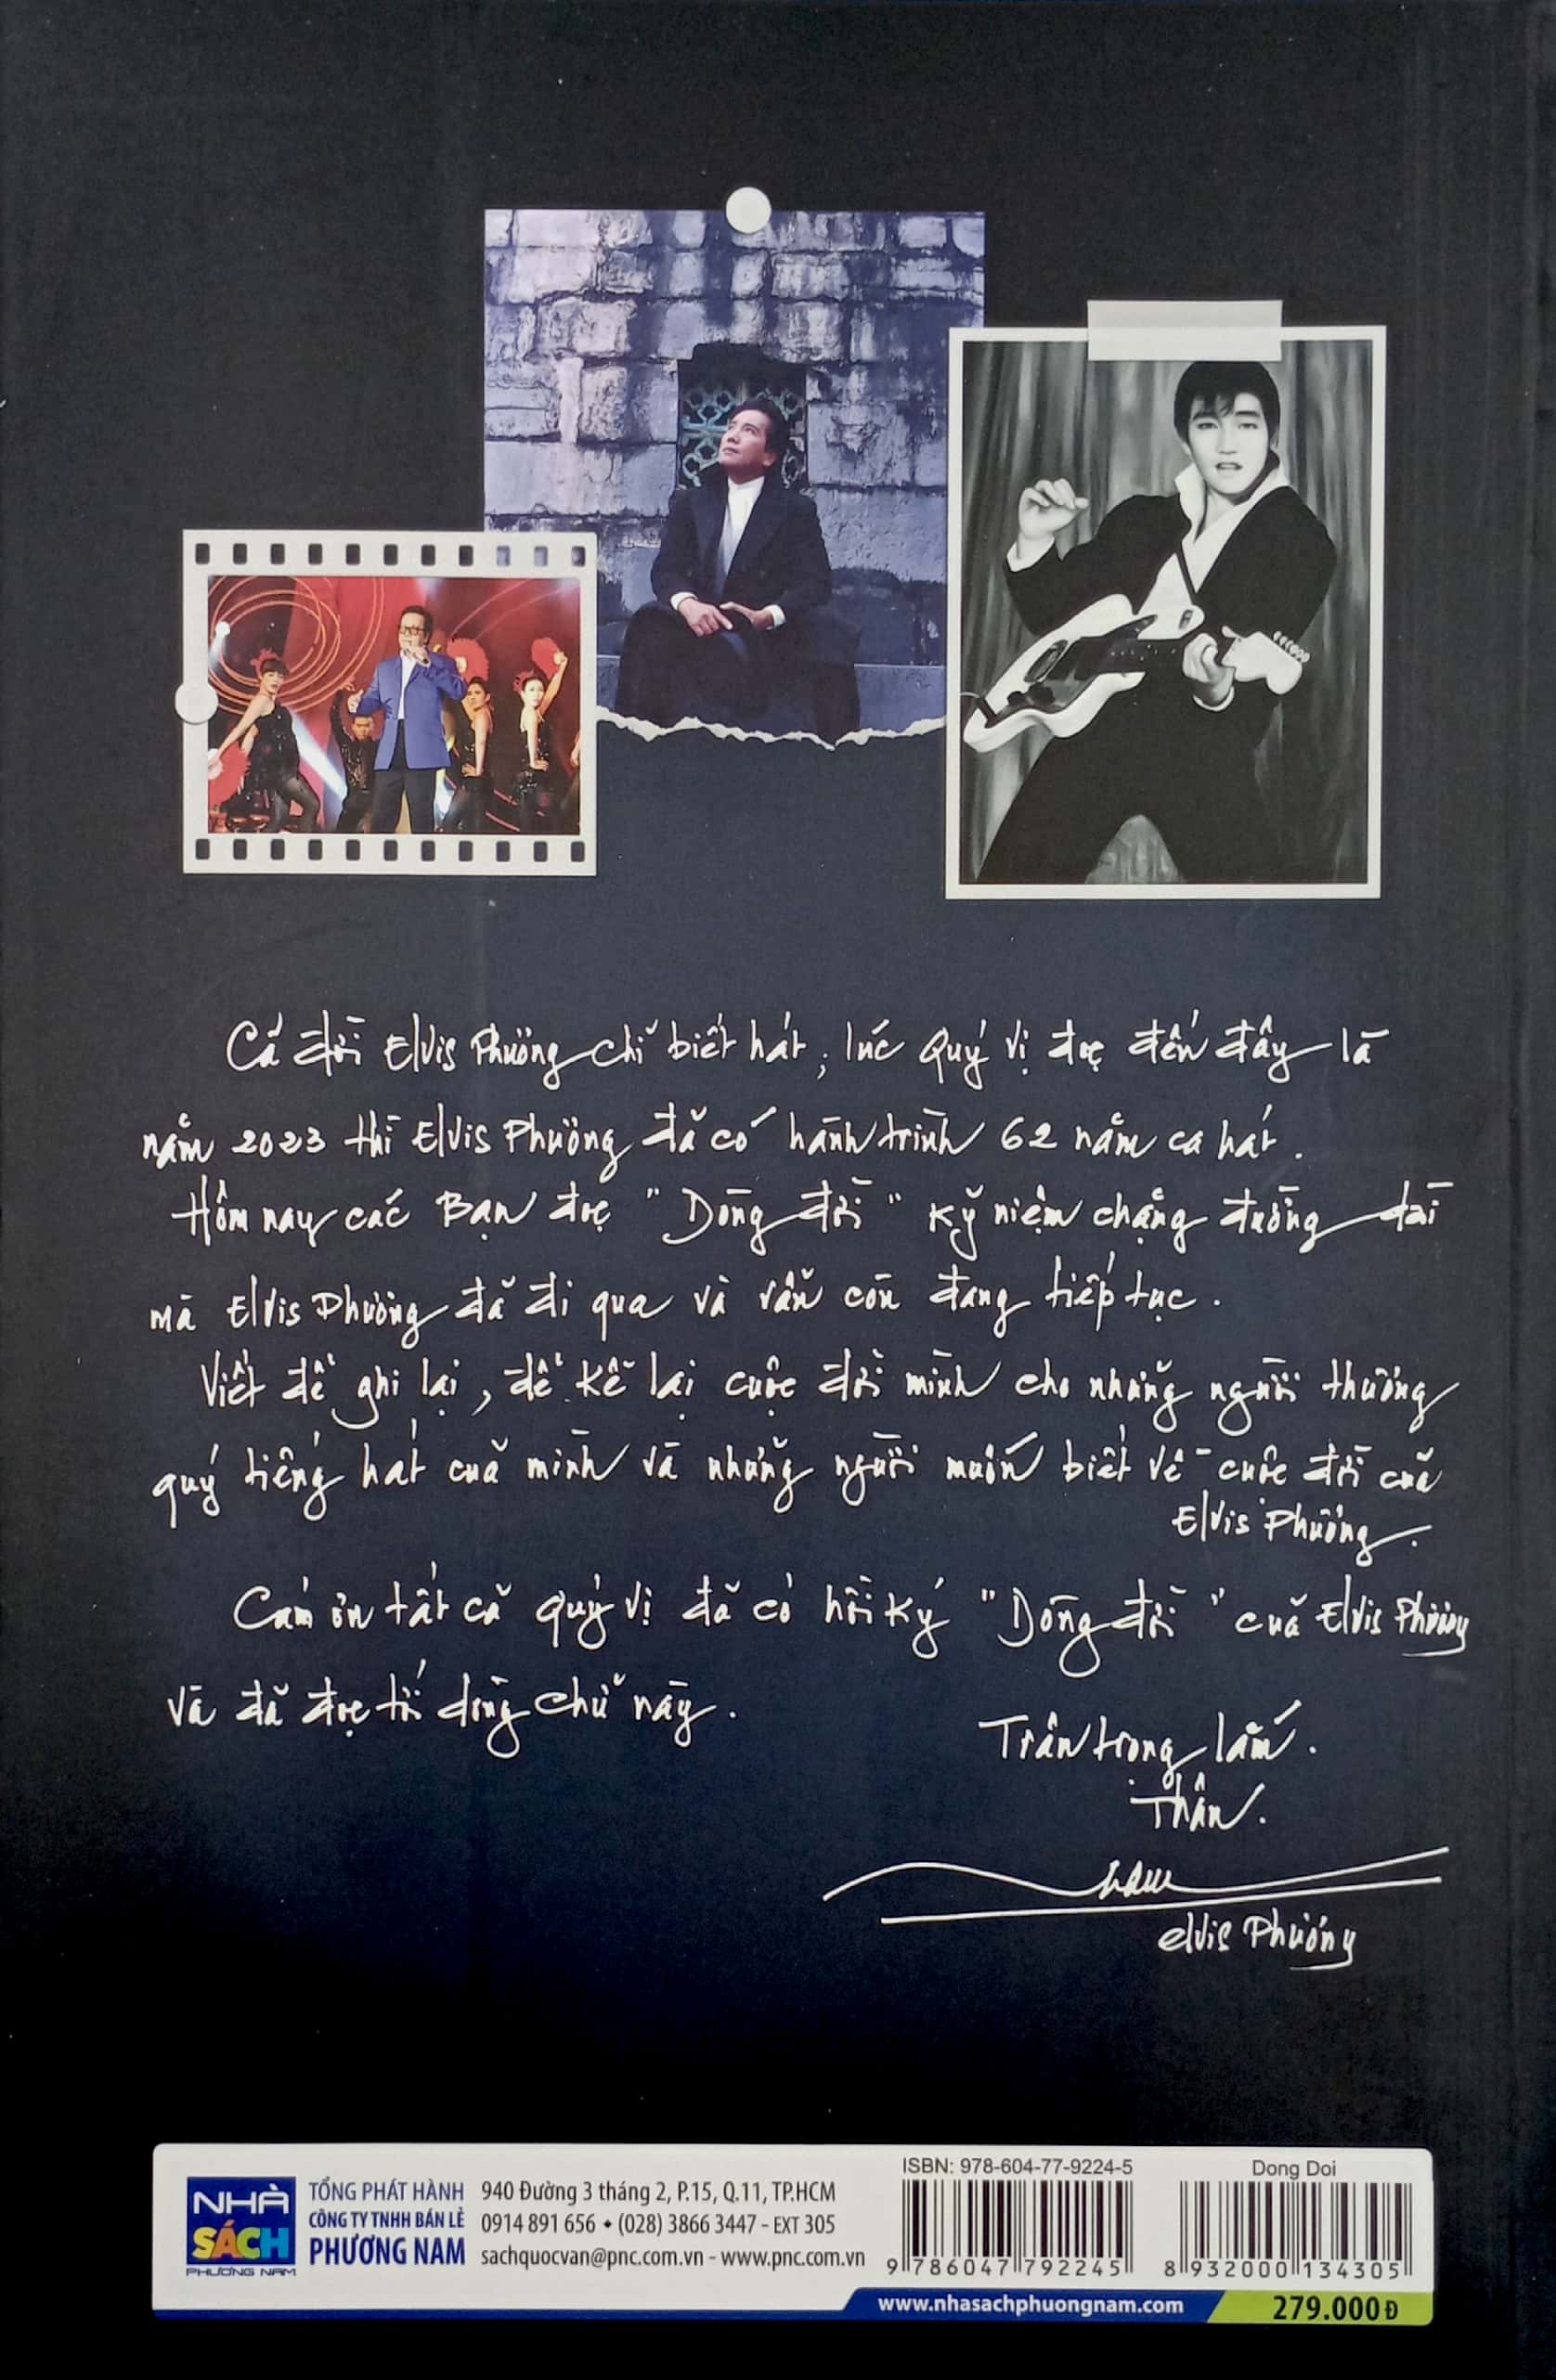 Cả đời Elvis Phương chỉ biết hát, lúc Quý vị đọc đến đây là
năm 2023 thì Elvis Phương đã có hành trình 62 năm ca hát.
Hôm nay các Bạn đọc "Dòng đời" kỷ niệm chặng đường dài
mà Elvis Phương đã đi qua và vẫn còn đang tiếp tục.
Viết để ghi lại, để kể lại cuộc đời mình cho những người thương
quý tiếng hát của mình và những người muốn biết về cuộc đời của
Elvis Phương.
Cám ơn tất cả quý vị đã có hồi ký "Dòng đời" của Elvis Phương
và đã đọc tới dòng chữ này.
Trân trọng lắm.
Thân.
elvis Phương
NHÀ
SÁCH
PHƯƠNG NAM
TỔNG PHÁT HÀNH
CÔNG TY TNHH BÁN LẺ
PHƯƠNG NAM
940 Đường 3 tháng 2, P.15, Q.11, TP.HCM
0914 891 656 • (028) 3866 3447 - EXT 305
sachquocvan@pnc.com.vn - www.pnc.com.vn
ISBN: 978-604-77-9224-5
9 786047 792245
Dong Doi
8 932000 134305
www.nhasachphuongnam.com
279.000Đ